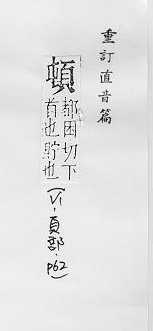 重訂直音篇
頓
都困切下
首也貯也
(V1-頁部·p62)